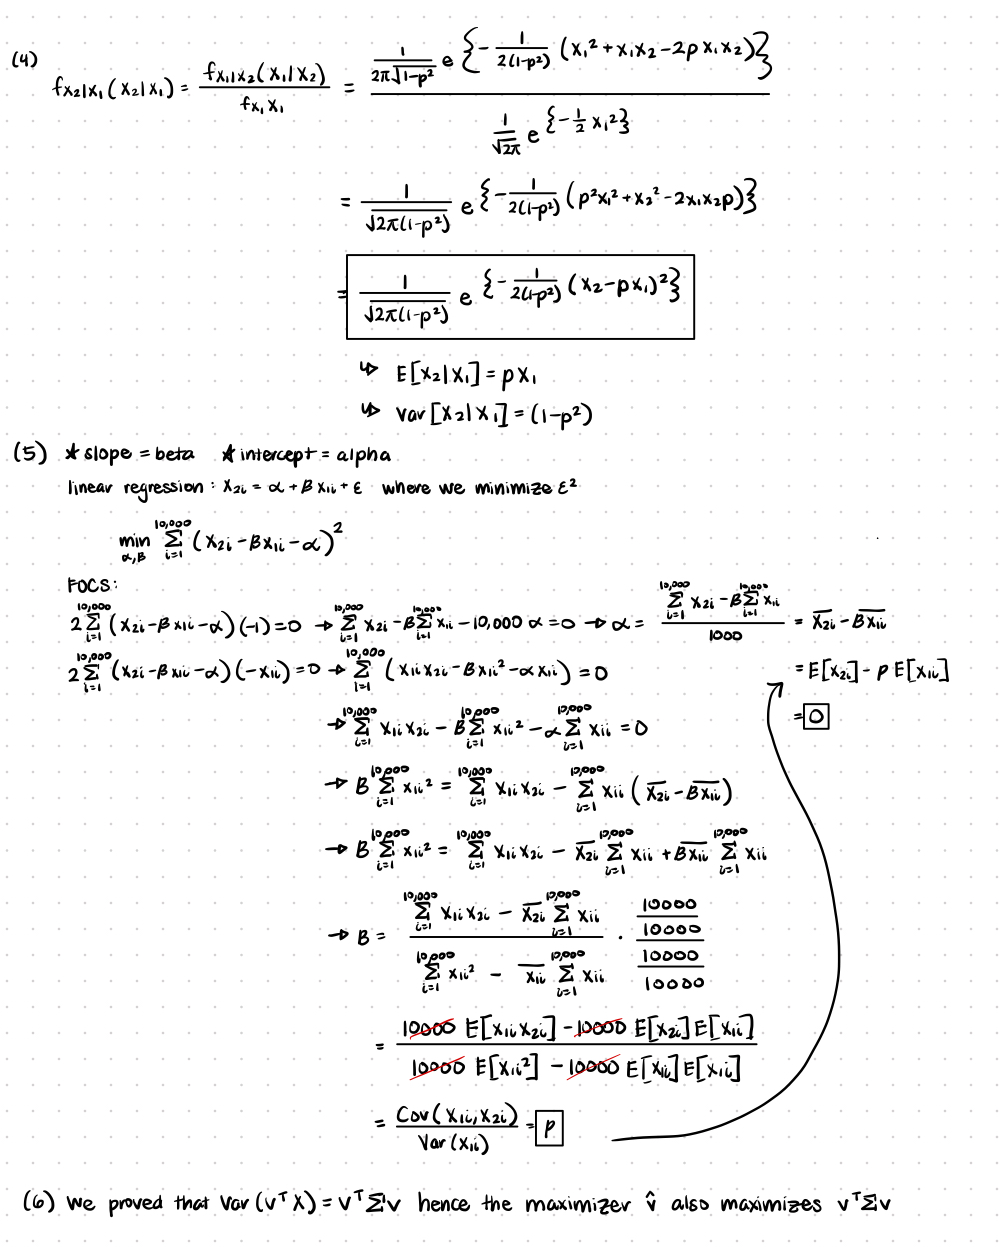 (4) f_{x2|x1}(x2|x1) = \frac{f_{x1|x2}(x1|x2)}{f_{x1}x1} = \frac{\frac{1}{2π\sqrt{1-p²}} e^{\{-\frac{1}{2(1-p²)}(x1²+x1x2-2p x1x2)\}}}{\frac{1}{\sqrt{2π}} e^{\{-\frac{1}{2}x1²\}}}
= \frac{1}{\sqrt{2π(1-p²)}} e^{\{-\frac{1}{2(1-p²)}(p²x1²+x2²-2x1x2p)\}}
= \frac{1}{\sqrt{2π(1-p²)}} e^{\{-\frac{1}{2(1-p²)}(x2-px1)²\}}
↳ E[X2|X1] = pX1
↳ Var[X2|X1] = (1-p²)
(5) ★ slope = beta ★ intercept = alpha
linear regression: x2i = α + βx1i + ε where we minimize ε²
min_{α,β} Σ_{i=1}^{10,000} (x2i - βx1i - α)²
FOCS:
2Σ_{i=1}^{10,000} (x2i - βx1i - α)(-1) = 0 → Σ_{i=1}^{10,000} x2i - βΣ_{i=1}^{10,000} x1i - 10,000 α = 0 → α = \frac{Σ_{i=1}^{10,000} x2i - βΣ_{i=1}^{10,000} x1i}{1000} = \overline{x2i} - \overline{βx1i}
2Σ_{i=1}^{10,000} (x2i - βx1i - α)(-x1i) = 0 → Σ_{i=1}^{10,000} (x1ix2i - βx1i² - αx1i) = 0
= E[x2i] - p E[x1i]
= 0
→ Σ_{i=1}^{10,000} x1ix2i - βΣ_{i=1}^{10,000} x1i² - αΣ_{i=1}^{10,000} x1i = 0
→ βΣ_{i=1}^{10,000} x1i² = Σ_{i=1}^{10,000} x1ix2i - Σ_{i=1}^{10,000} x1i (\overline{x2i} - \overline{βx1i})
→ βΣ_{i=1}^{10,000} x1i² = Σ_{i=1}^{10,000} x1ix2i - \overline{x2i} Σ_{i=1}^{10,000} x1i + \overline{βx1i} Σ_{i=1}^{10,000} x1i
→ β = \frac{Σ_{i=1}^{10,000} x1ix2i - \overline{x2i} Σ_{i=1}^{10,000} x1i}{Σ_{i=1}^{10,000} x1i² - \overline{x1i} Σ_{i=1}^{10,000} x1i} · \frac{\frac{10000}{10000}}{\frac{10000}{10000}}
= \frac{10000 E[x1ix2i] - 10000 E[x2i]E[x1i]}{10000 E[x1i²] - 10000 E[x1i]E[x1i]}
= \frac{Cov(x1i,x2i)}{Var(x1i)} = p
(6) we proved that Var(vᵀX) = vᵀΣv hence the maximizer v̂ also maximizes vᵀΣv